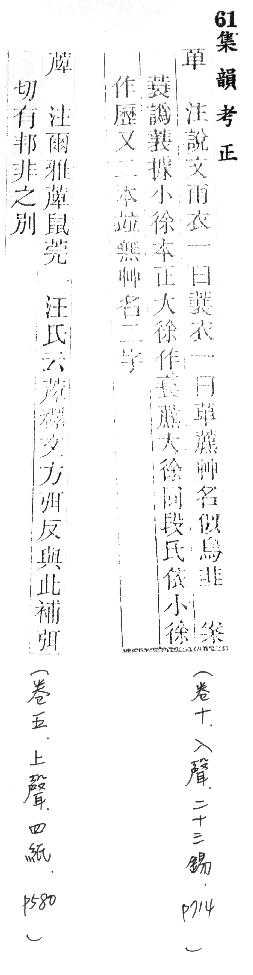 61集韻考正
萆 注說文雨衣一曰蓑衣一曰萆藨艸名似烏韭 案
蓑譌蓑據小徐本正大徐作蓑藨大徐同段氏依小徐
作歷又二本竝無艸名二字
(卷十、入聲、二十三錫、p714)
注爾雅鼠莞 汪氏云釋文方弭反與此補弭
切有邦非之別
(卷五、上聲、四紙、p580)